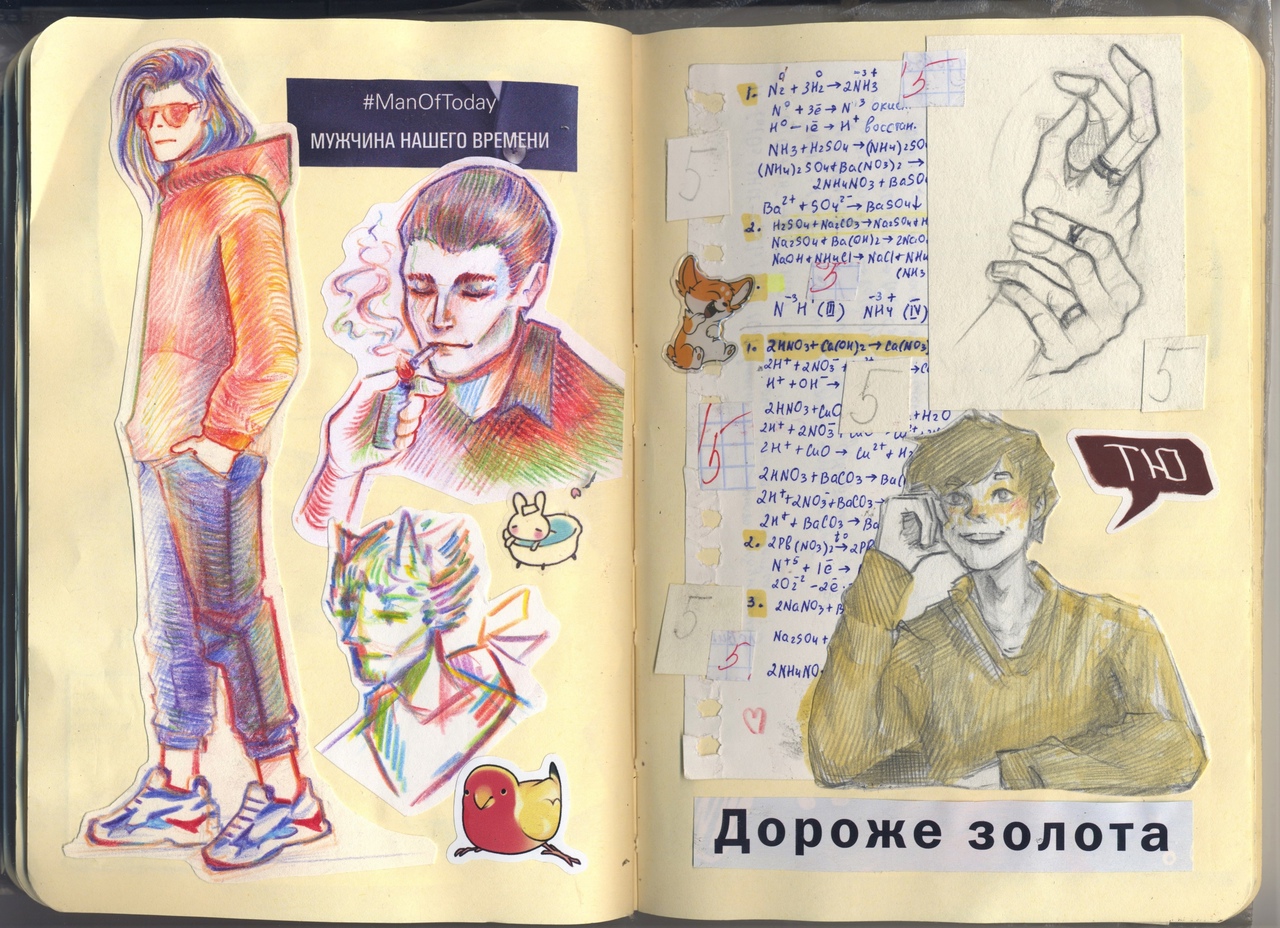 #ManOfToday
МУЖЧИНА НАШЕГО ВРЕМЕНИ
5
5
1. N₂⁰ + 3H₂⁰ → 2NH₃⁻³⁺
N⁰ + 3ē → N⁻³ окис
H⁰ – 1ē → H⁺ восстан.
NH₃ + H₂SO₄ → (NH₄)₂SO
(NH₄)₂SO₄ + Ba(NO₃)₂ →
2NH₄NO₃ + BaSO
Ba²⁺ + SO₄²⁻ → BaSO₄↓
2. H₂SO₄ + Na₂CO₃ → Na₂SO₄ + H
Na₂SO₄ + Ba(OH)₂ → 2NaO
NaOH + NH₄Cl → NaCl + NH₄
(NH₃
5
N⁻³H⁺ (III) NH₄⁻³⁺ (IV)
1. 2HNO₃ + Ca(OH)₂ → Ca(NO₃)
2H⁺ + 2NO₃⁻ +
H⁺ + OH⁻ →
5
5
5
2HNO₃ + CuO + H₂O
2H⁺ + 2NO₃⁻
2H⁺ + CuO → Cu²⁺ + H₂
2HNO₃ + BaCO₃ → Ba(
2H⁺ + 2NO₃⁻ + BaCO₃ →
2H⁺ + BaCO₃ → Ba
2. 2Pb(NO₃)₂ →t° 2P
N⁺⁵ + 1ē →
2O₂⁻² – 2ē
3. 2NaNO₃ + B
5
5
Na₂SO₄ +
2NH₄NO
ТЮ
Дороже золота